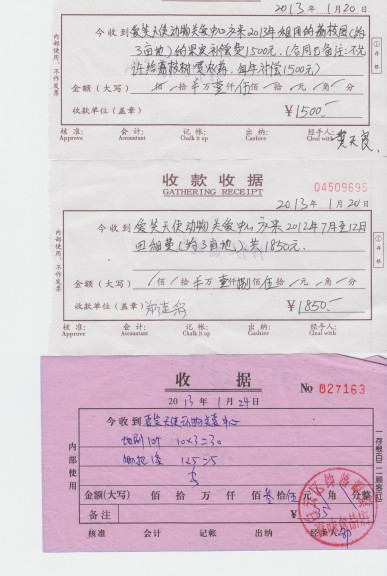 2013年1月20日
今收到爱笑天使动物关爱中心方来2013年租用的荔枝园(约
3亩地)的果农补偿费1500元,(合同已备注:不允
许给荔枝树喷农药,每年补偿1500元)
金额(大写) 佰 拾 万壹仟伍佰 拾 元 角 分
收款单位(盖章) ¥1500.-
核准: 会计: 记帐: 出纳: 经手人:
Approve Accountant Chalk it up Cashier Cleal with
内部使用,不作发票
收款收据
GATHERING RECEIPT
04509695
2013年1月20日
今收到爱笑天使动物关爱中心方来2012年7月至12月
田租费(约3亩地)共1850元.
金额(大写) 佰 拾 万壹仟捌佰伍拾 元 角 分
收款单位(盖章) ¥1850.-
核准: 会计: 记帐: 出纳: 经手人:
Approve Accountant Chalk it up Cashier Cleal with
内部使用,不作发票
收据
No 027163
2013年1月24日
今收到爱笑天使动物关爱中心
10×3=30
1×5=5
金额(大写) 佰 拾 万 仟 佰叁拾伍元 角 分整
备注 ¥35
核准 会计 记帐 出纳 经手人
内部使用
一存根(白)二顾客(红)